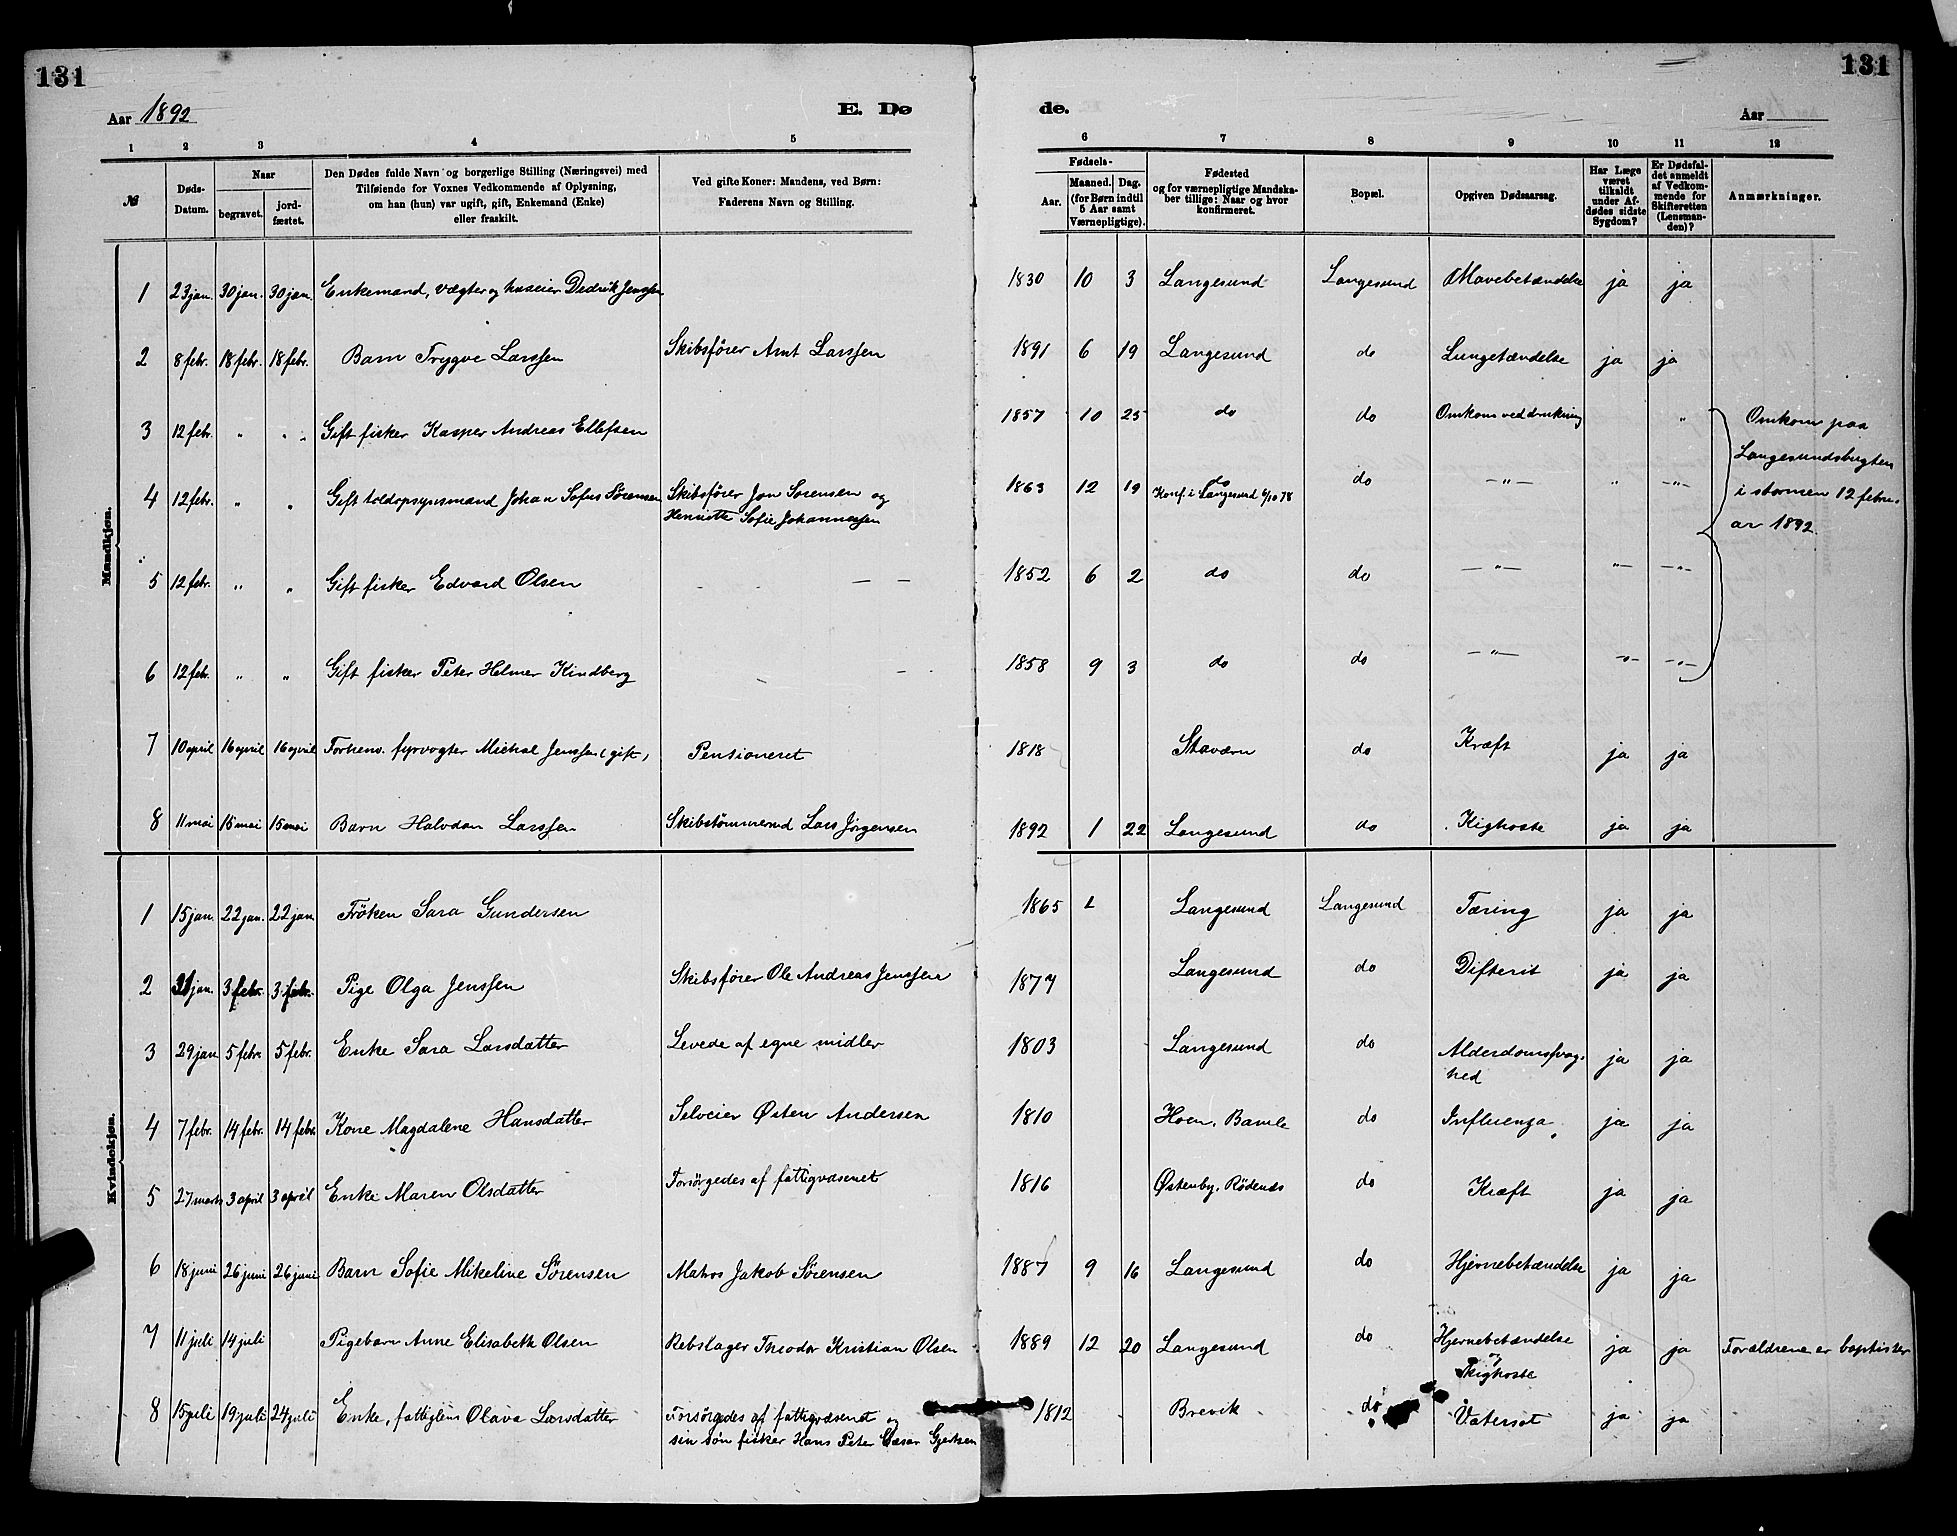 131
131
Aar 1892
E. Dø
de.
Aar
1 2 3 4 5
6 7 8 9 10 11 12
№
Døds-
Datum.
Naar
begravet.
jord-
fæstet.
Den Dødes fulde Navn og borgerlige Stilling (Næringsvei) med
Tilføiende for Voxnes Vedkommende af Oplysning,
om han (hun) var ugift, gift, Enkemand (Enke)
eller fraskilt.
Ved gifte Koner: Mandens, ved Børn:
Faderens Navn og Stilling.
Fødsels-
Aar.
Maaned. Dag.
(for Børn indtil
5 Aar samt
Værnepligtige).
Fødested
og for værnepligtige Mandska-
ber tillige: Naar og hvor
konfirmeret.
Bopæl.
Opgiven Dødsaarsag.
Har Læge
været
tilkaldt
under Af-
dødes sidste
Sygdom?
Er Dødsfal-
det anmeldt
af Vedkom-
mende for
Skifteretten
(Lensman-
den)?
Anmærkninger.
Mandkjøn.
1 23 jan. 30 jan. 30 jan. Enkemand, vægter og huseier Dedrik Jenssen 1830 10 3 Langesund Langesund Mavebetændelse ja ja
2 8 febr. 18 febr. 18 febr. Barn Trygve Larssen Skibsfører Arnt Larssen 1891 6 19 Langesund do Lungetændelse ja ja
3 12 febr. " " Gift fisker Kasper Andreas Ellefsen 1857 10 25 do do Omkom ved drukning " Omkom paa
Langesundsbugten
i stormen 12 febru-
ar 1892.
4 12 febr. " " Gift toldopsynsmand Johan Sofus Sørensen Skibsfører Jon Sørensen og
Henriette Sofie Johannessen 1863 12 19 do
Konf. i Langesund 6/10 78 do — " — " — " —
5 12 febr. " " Gift fisker Edvard Olsen — — 1852 6 2 do do — " — " — — " —
6 12 febr. " " Gift fisker Peter Helmer Kindberg — 1858 9 3 do do — " — — " — — " —
7 10 april 16 april 16 april Forhenv. fyrvogter Michal Jenssen (gift) Pensioneret 1818 Staværn do Kræft ja ja
8 11 mai 15 mai 15 mai Barn Halvdan Larssen Skibstømmermd Lars Jørgensen 1892 1 22 Langesund do Kighoste ja ja
Kvindekjøn.
1 15 jan. 22 jan. 22 jan. Frøken Sara Gundersen 1865 Langesund Langesund Tæring ja ja
2 31 jan. 3 febr. 3 febr. Pige Olga Jenssen Skibsfører Ole Andreas Jenssen 1877 Langesund do Difterit ja ja
3 29 jan 5 febr. 5 febr. Enke Sara Larsdatter Levede af egne midler 1803 Langesund do Alderdomssvag-
hed ja ja
4 7 febr. 14 febr. 14 febr. Kone Magdalene Hansdatter Selveier Østen Andersen 1810 Hoen, Bamle do Influenza ja ja
5 27 marts 3 april 3 april Enke Maren Olsdatter Forsørgedes af fattigvæsenet 1816 Østenby, Rødenes do Kræft ja ja
6 18 juni 26 juni 26 juni Barn Sofie Mikeline Sørensen Matros Jakob Sørensen 1887 9 16 Langesund do Hjernebetændelse ja ja
7 11 juli 14 juli Pigebarn Anne Elisabeth Olsen Rebslager Theodor Kristian Olsen 1889 12 20 Langesund do Hjernebetændelse
og
Kighoste ja ja Forældrene er baptister
8 15 juli 19 juli 24 juli Enke, fattiglem Olava Larsdatter Forsørgedes af fattigvæsenet og
sin søn fisker Hans Peter Cæsar Gjertsen 1812 Brevik do Vatersot ja ja